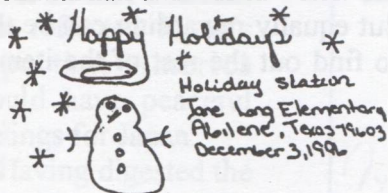 Happy Holidays
Holiday Station
Jane Long Elementary
Abilene, Texas 79603
December 3, 1996